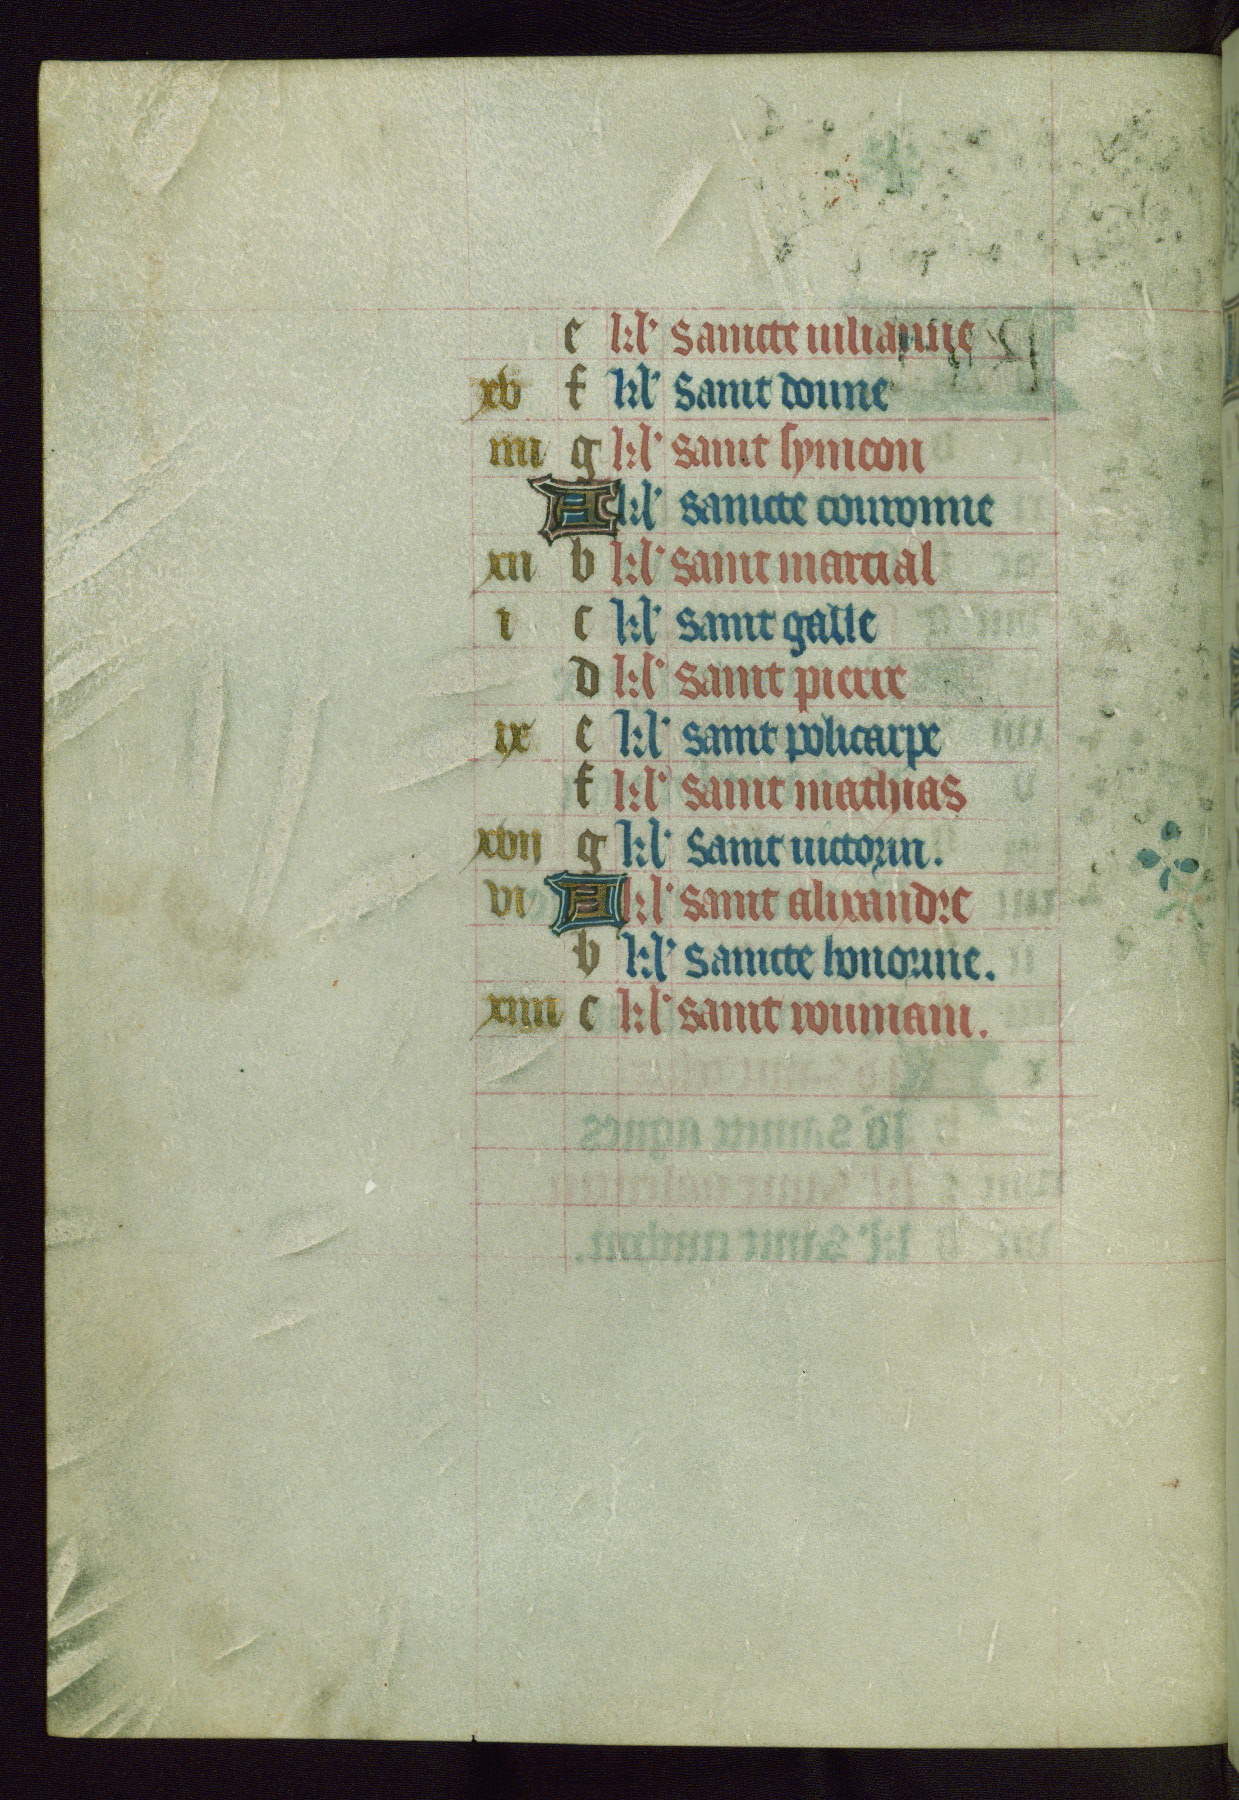 e kł' Saincte iulianne
xv f kł' Saint donne
iiii g kł' Saint symeon
A kł' Saincte couronne
xii b kł' Saint marcial
i c kł' Saint galle
d kł' Saint pierre
ix e kł' Saint policarpe
f kł' Saint mathias
xvii g kł' Saint victorin.
vi A kł' Saint alixandre
b kł' Saincte honorine.
xiiii c kł' Saint roumain.